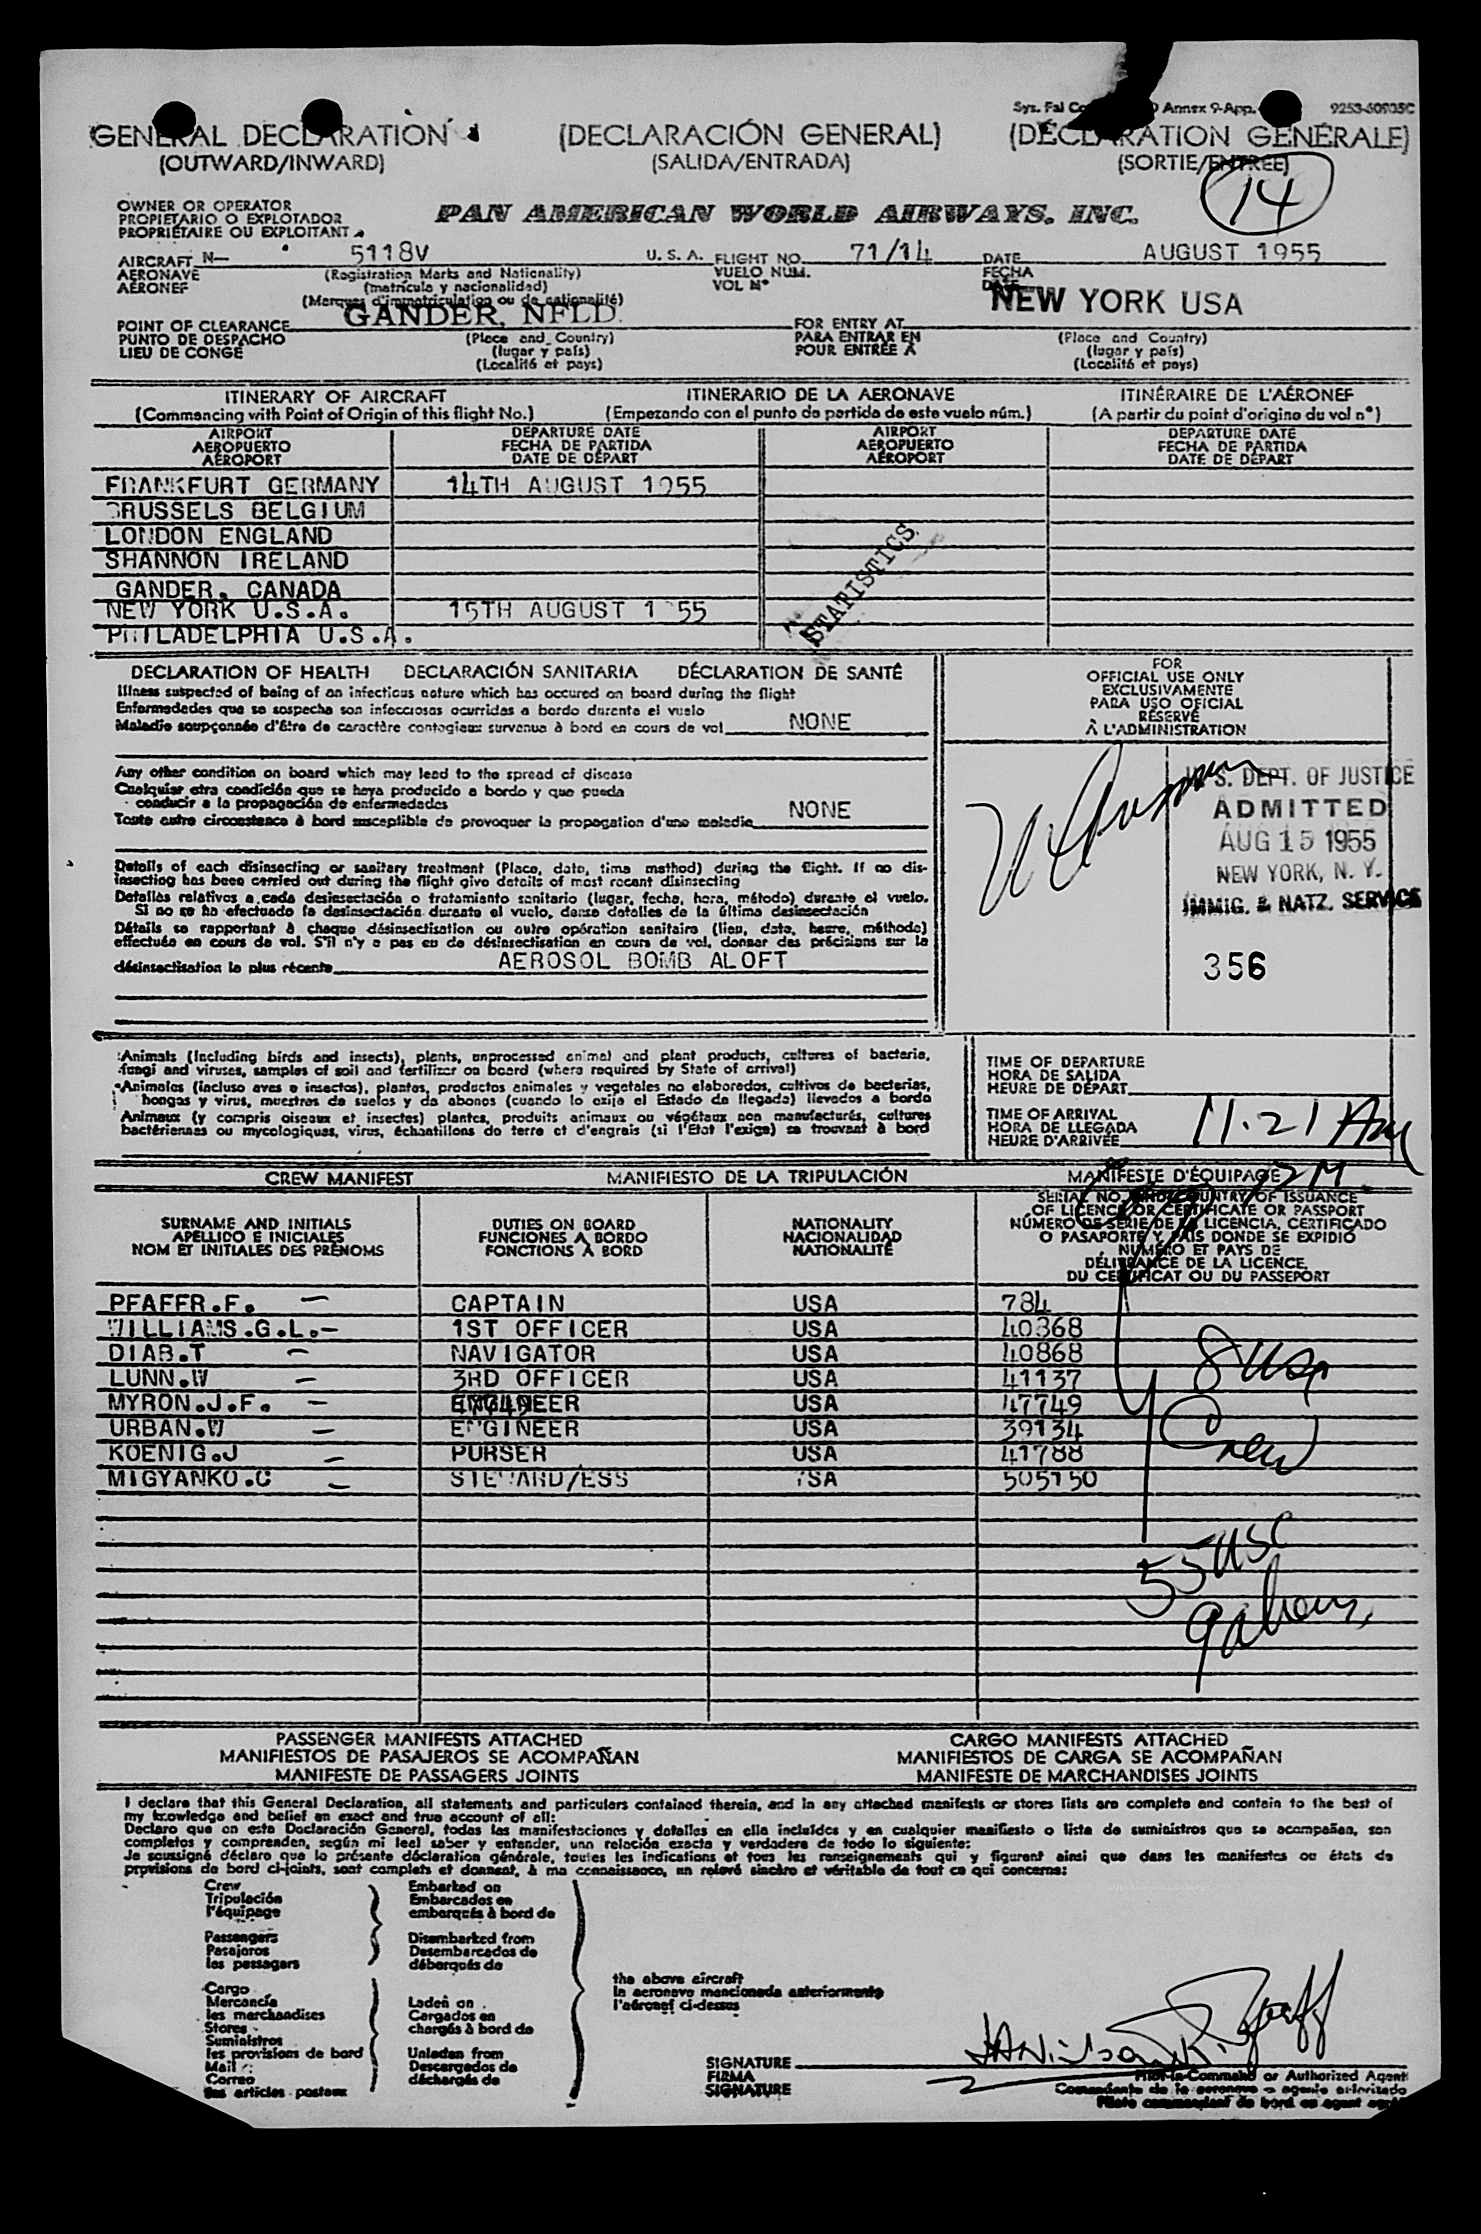 Sys. Fal Annex 9-App. 9253-60905C
GENERAL DECLARATION (DECLARACIÓN GENERAL) (DÉCLARATION GÉNÉRALE)
(OUTWARD/INWARD) (SALIDA/ENTRADA) (SORTIE/ENTREE)
14
OWNER OR OPERATOR
PROPIETARIO O EXPLOTADOR PAN AMERICAN WORLD AIRWAYS, INC.
PROPRIÉTAIRE OU EXPLOITANT
AIRCRAFT N— 5118V U. S. A. FLIGHT NO. 71/14 DATE AUGUST 1955
AERONAVE (Registration Marks and Nationality) VUELO NUM. FECHA
AÉRONEF (matrícula y nacionalidad) VOL Nº DATE
(Marques d'immatriculation ou de nationalité)
GANDER, NFLD. NEW YORK USA
POINT OF CLEARANCE FOR ENTRY AT
PUNTO DE DESPACHO (Place and Country) PARA ENTRAR EN (Place and Country)
LIEU DE CONGÉ (lugar y país) POUR ENTRÉE À (lugar y país)
(Localité et pays) (Localité et pays)
ITINERARY OF AIRCRAFT ITINERARIO DE LA AERONAVE ITINÉRAIRE DE L'AÉRONEF
(Commencing with Point of Origin of this flight No.) (Empezando con el punto de partida de este vuelo núm.) (A partir du point d'origine du vol nº)
AIRPORT DEPARTURE DATE AIRPORT DEPARTURE DATE
AEROPUERTO FECHA DE PARTIDA AEROPUERTO FECHA DE PARTIDA
AÉROPORT DATE DE DÉPART AÉROPORT DATE DE DÉPART
FRANKFURT GERMANY 14TH AUGUST 1955
BRUSSELS BELGIUM
LONDON ENGLAND
SHANNON IRELAND
GANDER, CANADA
NEW YORK U.S.A. 15TH AUGUST 1955
PHILADELPHIA U.S.A.
STATISTICS
DECLARATION OF HEALTH DECLARACIÓN SANITARIA DÉCLARATION DE SANTÉ
Illness suspected of being of an infectious nature which has occured on board during the flight
Enfermedades que se sospecha son infecciosas ocurridas a bordo durante el vuelo
Maladie soupçonnée d'être de caractère contagieux survenue à bord en cours de vol NONE
Any other condition on board which may lead to the spread of disease
Cualquier otra condición que se haya producido a bordo y que pueda
conducir a la propagación de enfermedades
Toute autre circonstance à bord susceptible de provoquer la propagation d'une maladie NONE
Details of each disinsecting or sanitary treatment (Place, date, time method) during the flight. If no dis-
insecting has been carried out during the flight give details of most recent disinsecting
Detalles relativos a cada desinsectación o tratamiento sanitario (lugar, fecha, hora, método) durante el vuelo.
Si no se ha efectuado la desinsectación durante el vuelo, dense detalles de la última desinsectación
Détails se rapportant à chaque désinsectisation ou autre opération sanitaire (lieu, date, heure, méthode)
effectuée en cours de vol. S'il n'y a pas eu de désinsectisation en cours de vol, donner des précisions sur la
désinsectisation la plus récente AEROSOL BOMB ALOFT
FOR
OFFICIAL USE ONLY
EXCLUSIVAMENTE
PARA USO OFICIAL
RÉSERVÉ
À L'ADMINISTRATION
U.S. DEPT. OF JUSTICE
ADMITTED
AUG 15 1955
NEW YORK, N. Y.
IMMIG. & NATZ. SERVICE
356
Animals (including birds and insects), plants, unprocessed animal and plant products, cultures of bacteria,
fungi and viruses, samples of soil and fertilizer on board (where required by State of arrival)
Animales (incluso aves e insectos), plantas, productos animales y vegetales no elaborados, cultivos de bacterias,
hongos y virus, muestras de suelos y de abonos (cuando lo exija el Estado de llegada) llevados a bordo
Animaux (y compris oiseaux et insectes) plantes, produits animaux ou végétaux non manufacturés, cultures
bactériennes ou mycologiques, virus, échantillons de terre et d'engrais (si l'Etat l'exige) se trouvant à bord
TIME OF DEPARTURE
HORA DE SALIDA
HEURE DE DÉPART
TIME OF ARRIVAL
HORA DE LLEGADA
HEURE D'ARRIVÉE 11.21 AM
CREW MANIFEST MANIFIESTO DE LA TRIPULACIÓN MANIFESTE D'ÉQUIPAGE
SURNAME AND INITIALS DUTIES ON BOARD NATIONALITY SERIAL NO. AND COUNTRY OF ISSUANCE
APELLIDO E INICIALES FUNCIONES A BORDO NACIONALIDAD OF LICENCE OR CERTIFICATE OR PASSPORT
NOM ET INITIALES DES PRÉNOMS FONCTIONS À BORD NATIONALITÉ NÚMERO DE SERIE DE LA LICENCIA, CERTIFICADO
O PASAPORTE Y PAÍS DONDE SE EXPIDIÓ
NUMÉRO ET PAYS DE
DÉLIVRANCE DE LA LICENCE,
DU CERTIFICAT OU DU PASSEPORT
PFAFFR.F. — CAPTAIN USA 784
WILLIAMS.G.L.— 1ST OFFICER USA 40368
DIAB.T — NAVIGATOR USA 40868
LUNN.W — 3RD OFFICER USA 41137
MYRON.J.F. — ENGINEER USA 47749
URBAN.W — ENGINEER USA 39134
KOENIG.J — PURSER USA 41788
MIGYANKO.C — STEWARD/ESS USA 505150
8 USA
Crew
55 USC
PASSENGER MANIFESTS ATTACHED CARGO MANIFESTS ATTACHED
MANIFIESTOS DE PASAJEROS SE ACOMPAÑAN MANIFIESTOS DE CARGA SE ACOMPAÑAN
MANIFESTE DE PASSAGERS JOINTS MANIFESTE DE MARCHANDISES JOINTS
I declare that this General Declaration, all statements and particulars contained therein, and in any attached manifests or stores lists are complete and contain to the best of
my knowledge and belief an exact and true account of all:
Declaro que en esta Declaración General, todas las manifestaciones y detalles en ella incluídos y en cualquier manifiesto o lista de suministros que se acompañan, son
completos y comprenden, según mi leal saber y entender, una relación exacta y verdadera de todo lo siguiente:
Je soussigné déclare que la présente déclaration générale, toutes les indications et tous les renseignements qui y figurent ainsi que dans les manifestes ou états de
provisions de bord ci-joints, sont complets et donnent, à ma connaissance, un relevé sincère et véritable de tout ce qui concerne:
Crew Embarked on
Tripulación Embarcados en
l'équipage embarqués à bord de
Passengers Disembarked from
Pasajeros Desembarcados de
les passagers débarqués de
the above aircraft
la aeronave mencionada anteriormente
l'aéronef ci-dessus
Cargo
Mercancía Laden on
les marchandises Cargados en
Stores chargés à bord de
Suministros
les provisions de bord Unladen from
Mail Descargados de
Correo déchargés de
les articles postaux
SIGNATURE
FIRMA Pilot-in-Command or Authorized Agent
SIGNATURE Comandante de la aeronave o agente autorizado
Pilote commandant de bord ou agent